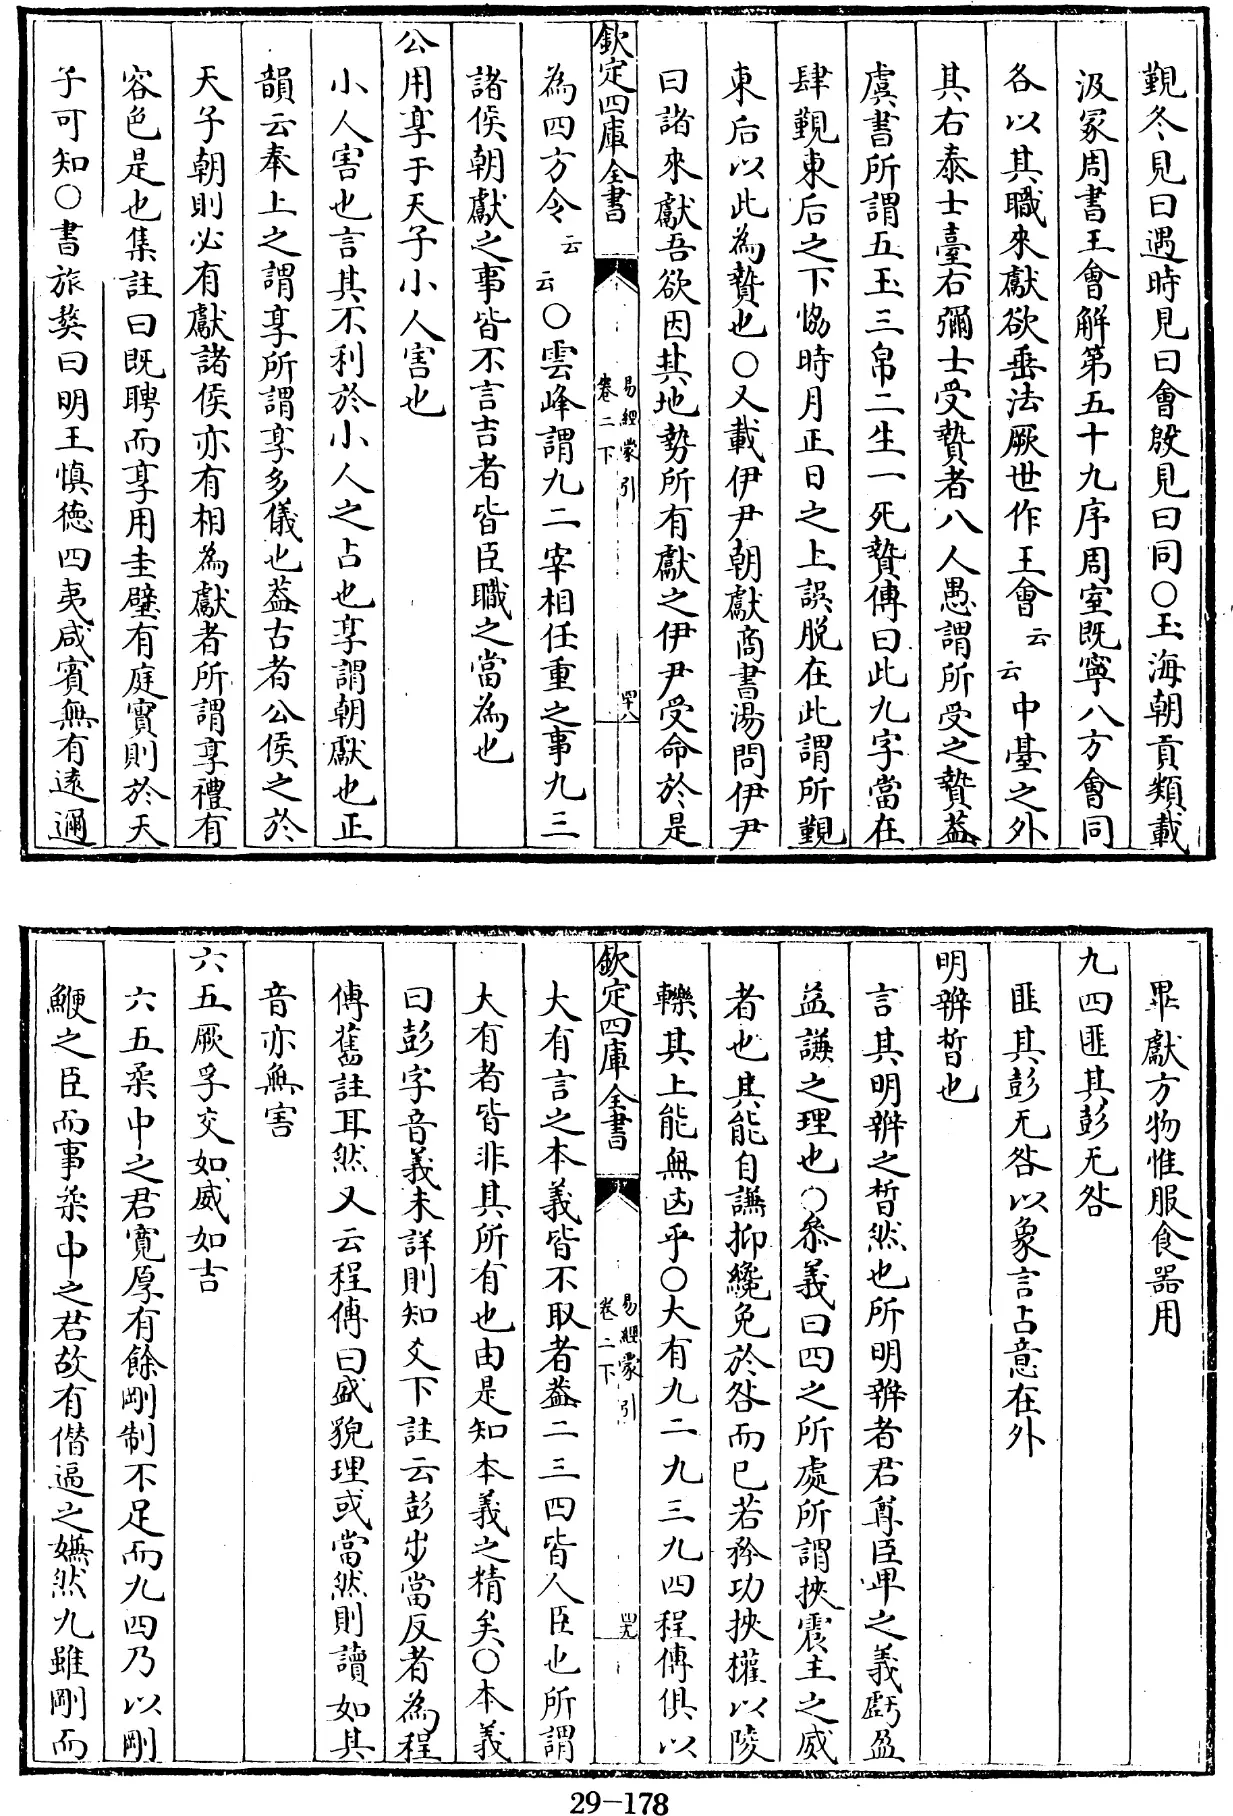 覲冬見曰遇時見曰會殷見曰同○玉海朝貢類載
汲冢周書王會解第五十九序周室既寧八方會同
各以其職來獻欲垂法厥世作王會云云中臺之外
其右泰士臺右彌士受贄者八人愚謂所受之贄葢
虞書所謂五玉三帛二生一死贄傳曰此九字當在
肆覲東后之下恊時月正日之上誤脫在此謂所覲
東后以此為贄也○又載伊尹朝獻商書湯問伊尹
曰諸來獻吾欲因其地勢所有獻之伊尹受命於是
欽定四庫全書 易經蒙引 卷二下 四十八
為四方令云云○雲峰謂九二宰相任重之事九三
諸侯朝獻之事皆不言吉者皆臣職之當為也
公用享于天子小人害也
小人害也言其不利於小人之占也享謂朝獻也正
韻云奉上之謂享所謂享多儀也葢古者公侯之於
天子朝則必有獻諸侯亦有相為獻者所謂享禮有
容色是也集註曰既聘而享用圭璧有庭實則於天
子可知○書旅獒曰明王慎徳四夷咸賓無有逺邇
畢獻方物惟服食器用
九四匪其彭无咎
匪其彭无咎以象言占意在外
明辨晳也
言其明辨之晳然也所明辨者君尊臣卑之義虧盈
益謙之理也○叅義曰四之所處所謂挾震主之威
者也其能自謙抑纔免於咎而已若矜功挾權以陵
轢其上能無凶乎○大有九二九三九四程傳俱以
欽定四庫全書 易經蒙引 卷二下 四十九
大有言之本義皆不取者葢二三四皆人臣也所謂
大有者皆非其所有也由是知本義之精矣○本義
曰彭字音義未詳則知爻下註云彭步當反者為程
傳舊註耳然又云程傳曰盛貌理或當然則讀如其
音亦無害
六五厥孚交如威如吉
六五柔中之君寛厚有餘剛制不足而九四乃以剛
鯁之臣而事柔中之君故有僭逼之嫌然九雖剛而
29-178